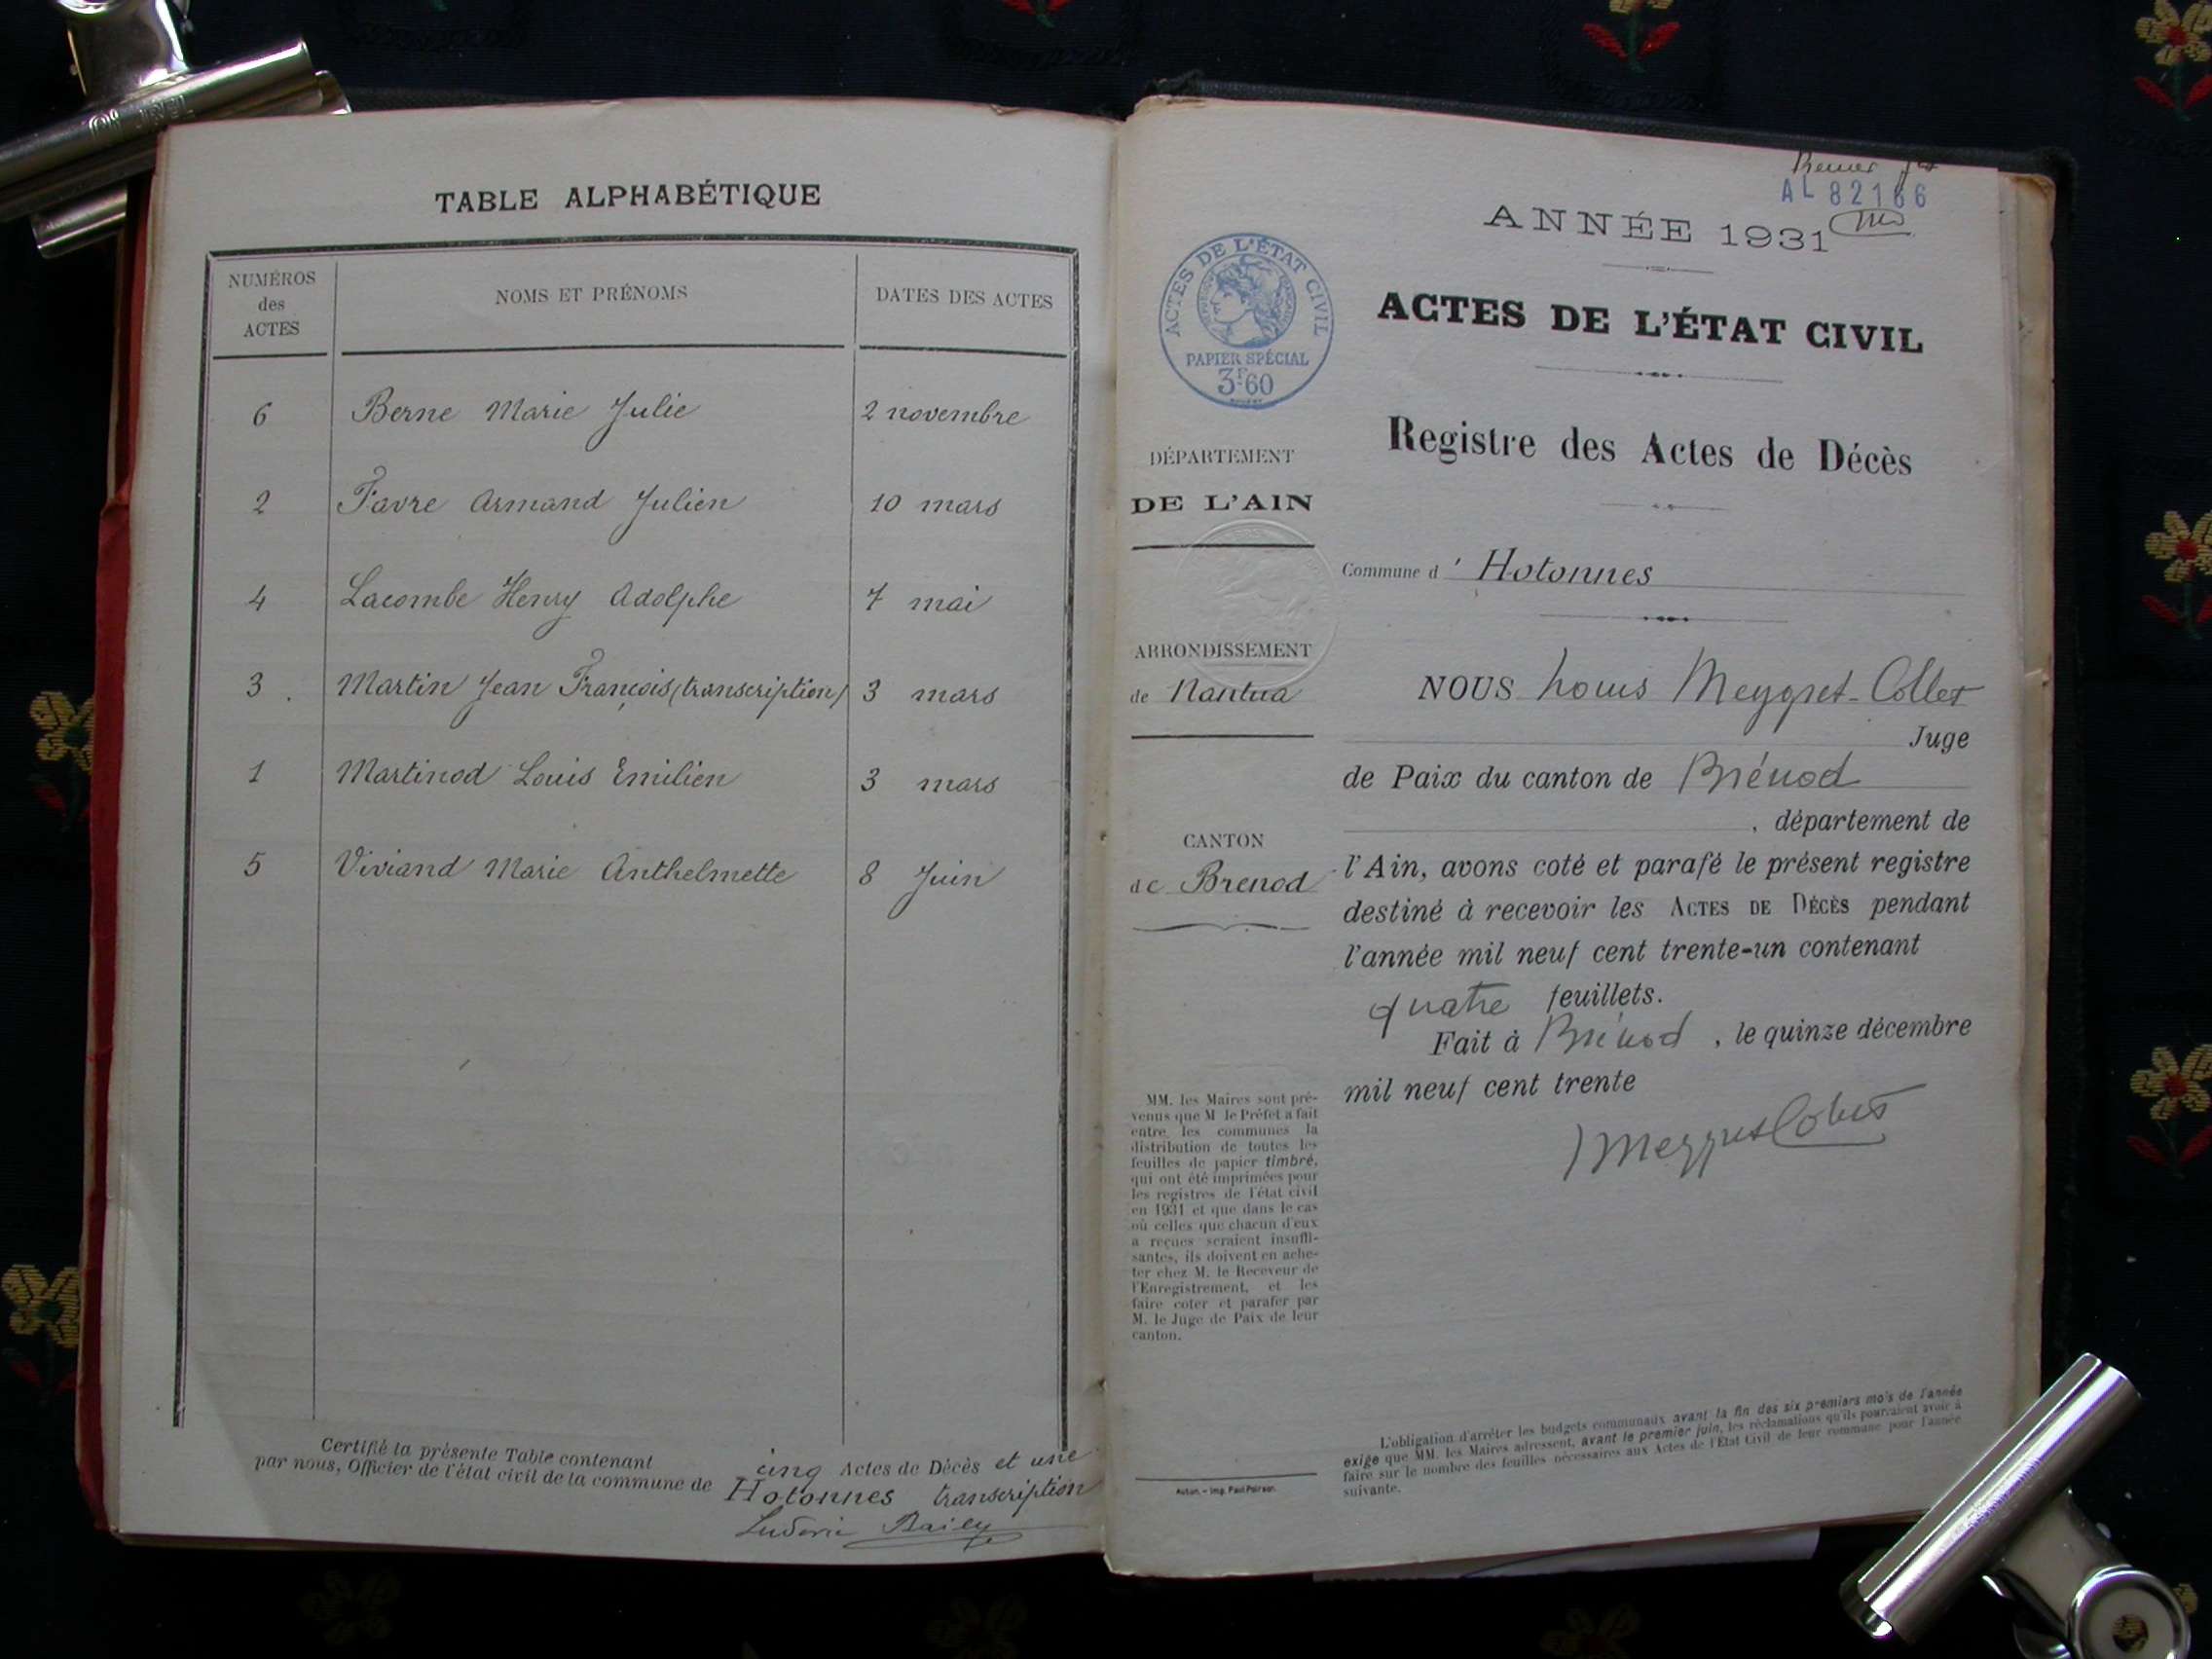 TABLE ALPHABÉTIQUE
NUMÉROS
des
ACTES
NOMS ET PRÉNOMS
DATES DES ACTES
6 Berne Marie Julie 2 novembre
2 Favre Armand Julien 10 mars
4 Lacombe Henry Adolphe 7 mai
3 Martin Jean François (transcription) 3 mars
1 Martinod Louis Emilien 3 mars
5 Viviand Marie Anthelmette 8 Juin
Certifié la présente Table contenant cinq Actes de Décès et une
par nous, Officier de l'état civil de la commune de Hotonnes transcription
AL 82166
ANNÉE 1931
ACTES DE L'ÉTAT CIVIL
RÉPUBLIQUE FRANÇAISE
PAPIER SPÉCIAL
3F60
ACTES DE L'ÉTAT CIVIL
Registre des Actes de Décès
DÉPARTEMENT
DE L'AIN
ARRONDISSEMENT
de Nantua
CANTON
de Brenod
MM. les Maires sont pré-
venus que M le Préfet a fait
entre les communes la
distribution de toutes les
feuilles de papier timbré,
qui ont été imprimées pour
les registres de l'état civil
en 1931 et que dans le cas
où celles que chacun d'eux
a reçues seraient insuffi-
santes, ils doivent en ache-
ter chez M. le Receveur de
l'Enregistrement, et les
faire coter et parafer par
M. le Juge de Paix de leur
canton.
Autun. - Imp. Paul Poirson.
Commune d' Hotonnes
NOUS Louis Meygret-Collet
Juge
de Paix du canton de Brénod
, département de
l'Ain, avons coté et parafé le présent registre
destiné à recevoir les ACTES DE DÉCÈS pendant
l'année mil neuf cent trente-un contenant
quatre feuillets.
Fait à Brénod, le quinze décembre
mil neuf cent trente
L'obligation d'arrêter les budgets communaux avant la fin des six premiers mois de l'année
exige que MM. les Maires adressent, avant le premier juin, les réclamations qu'ils pourraient avoir à
faire sur le nombre des feuilles nécessaires aux Actes de l'État Civil de leur commune pour l'année
suivante.